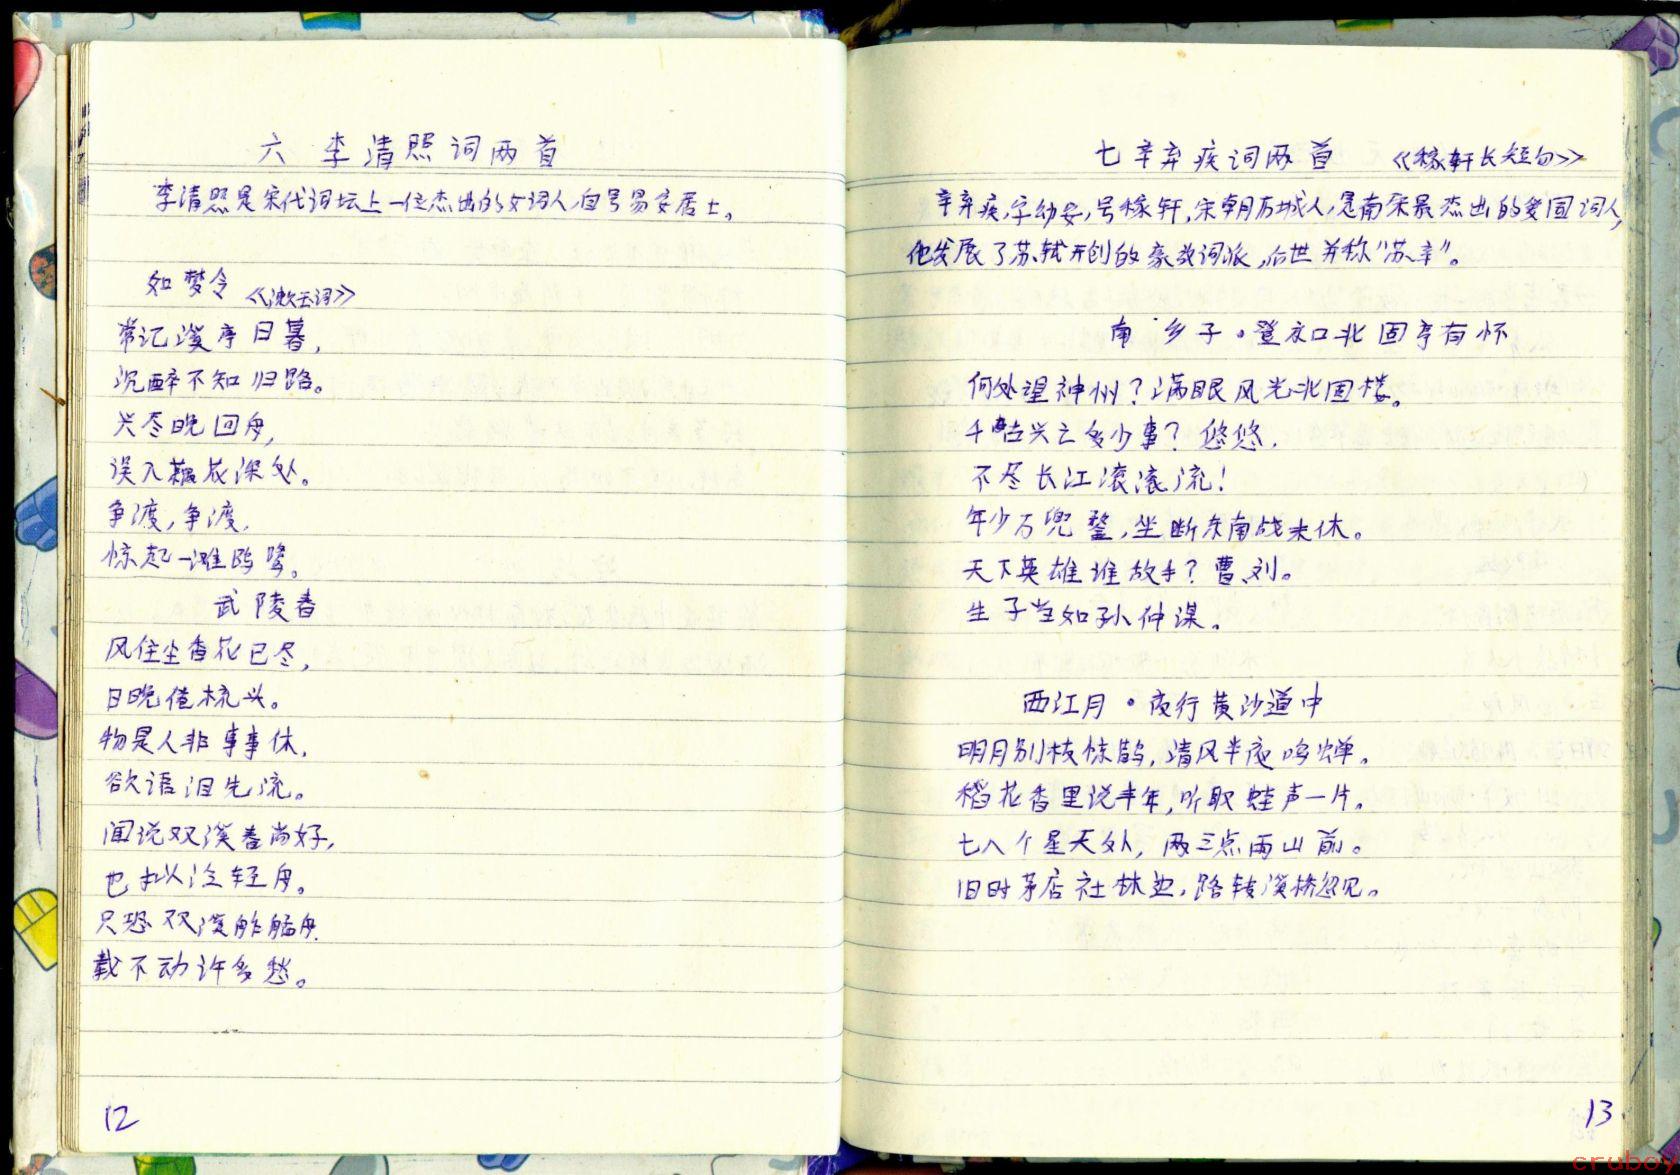 六 李清照词两首
李清照是宋代词坛上一位杰出的女词人,自号易安居士。
如梦令 《漱玉词》
常记溪亭日暮,
沉醉不知归路。
兴尽晚回舟,
误入藕花深处。
争渡,争渡,
惊起一滩鸥鹭。
武陵春
风住尘香花已尽,
日晚倦梳头。
物是人非事事休,
欲语泪先流。
闻说双溪春尚好,
也拟泛轻舟。
只恐双溪舴艋舟,
载不动许多愁。
12
七 辛弃疾词两首 《稼轩长短句》
辛弃疾,字幼安,号稼轩,宋朝历城人,是南宋最杰出的爱国词人,
他发展了苏轼开创的豪放词派,后世并称“苏辛”。
南乡子·登京口北固亭有怀
何处望神州?满眼风光北固楼。
千古兴亡多少事?悠悠,
不尽长江滚滚流!
年少万兜鍪,坐断东南战未休。
天下英雄谁敌手?曹刘。
生子当如孙仲谋。
西江月·夜行黄沙道中
明月别枝惊鹊,清风半夜鸣蝉。
稻花香里说丰年,听取蛙声一片。
七八个星天外,两三点雨山前。
旧时茅店社林边,路转溪桥忽见。
13
cruboy